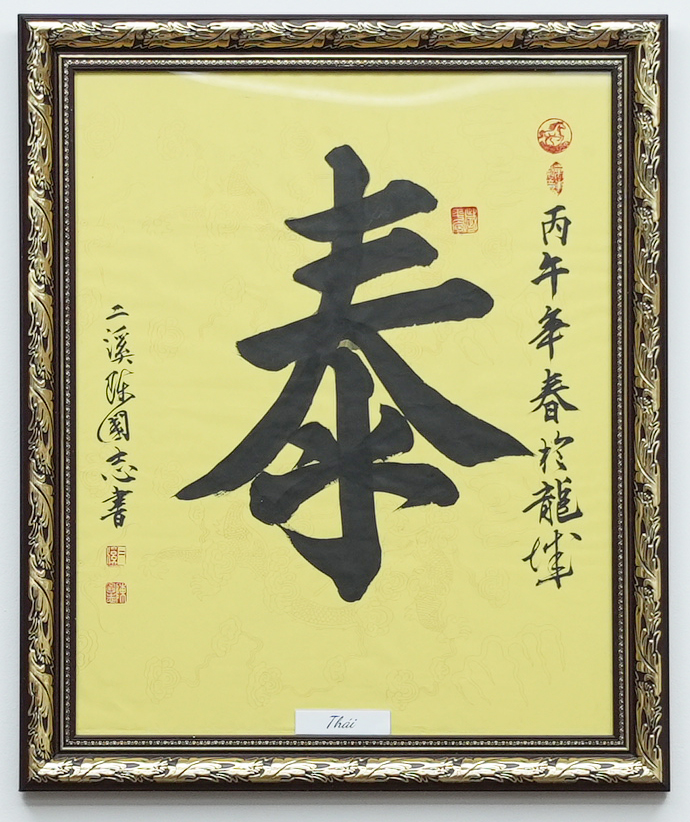 丙午年春於龍城
泰
二溪陳國志書
Thái